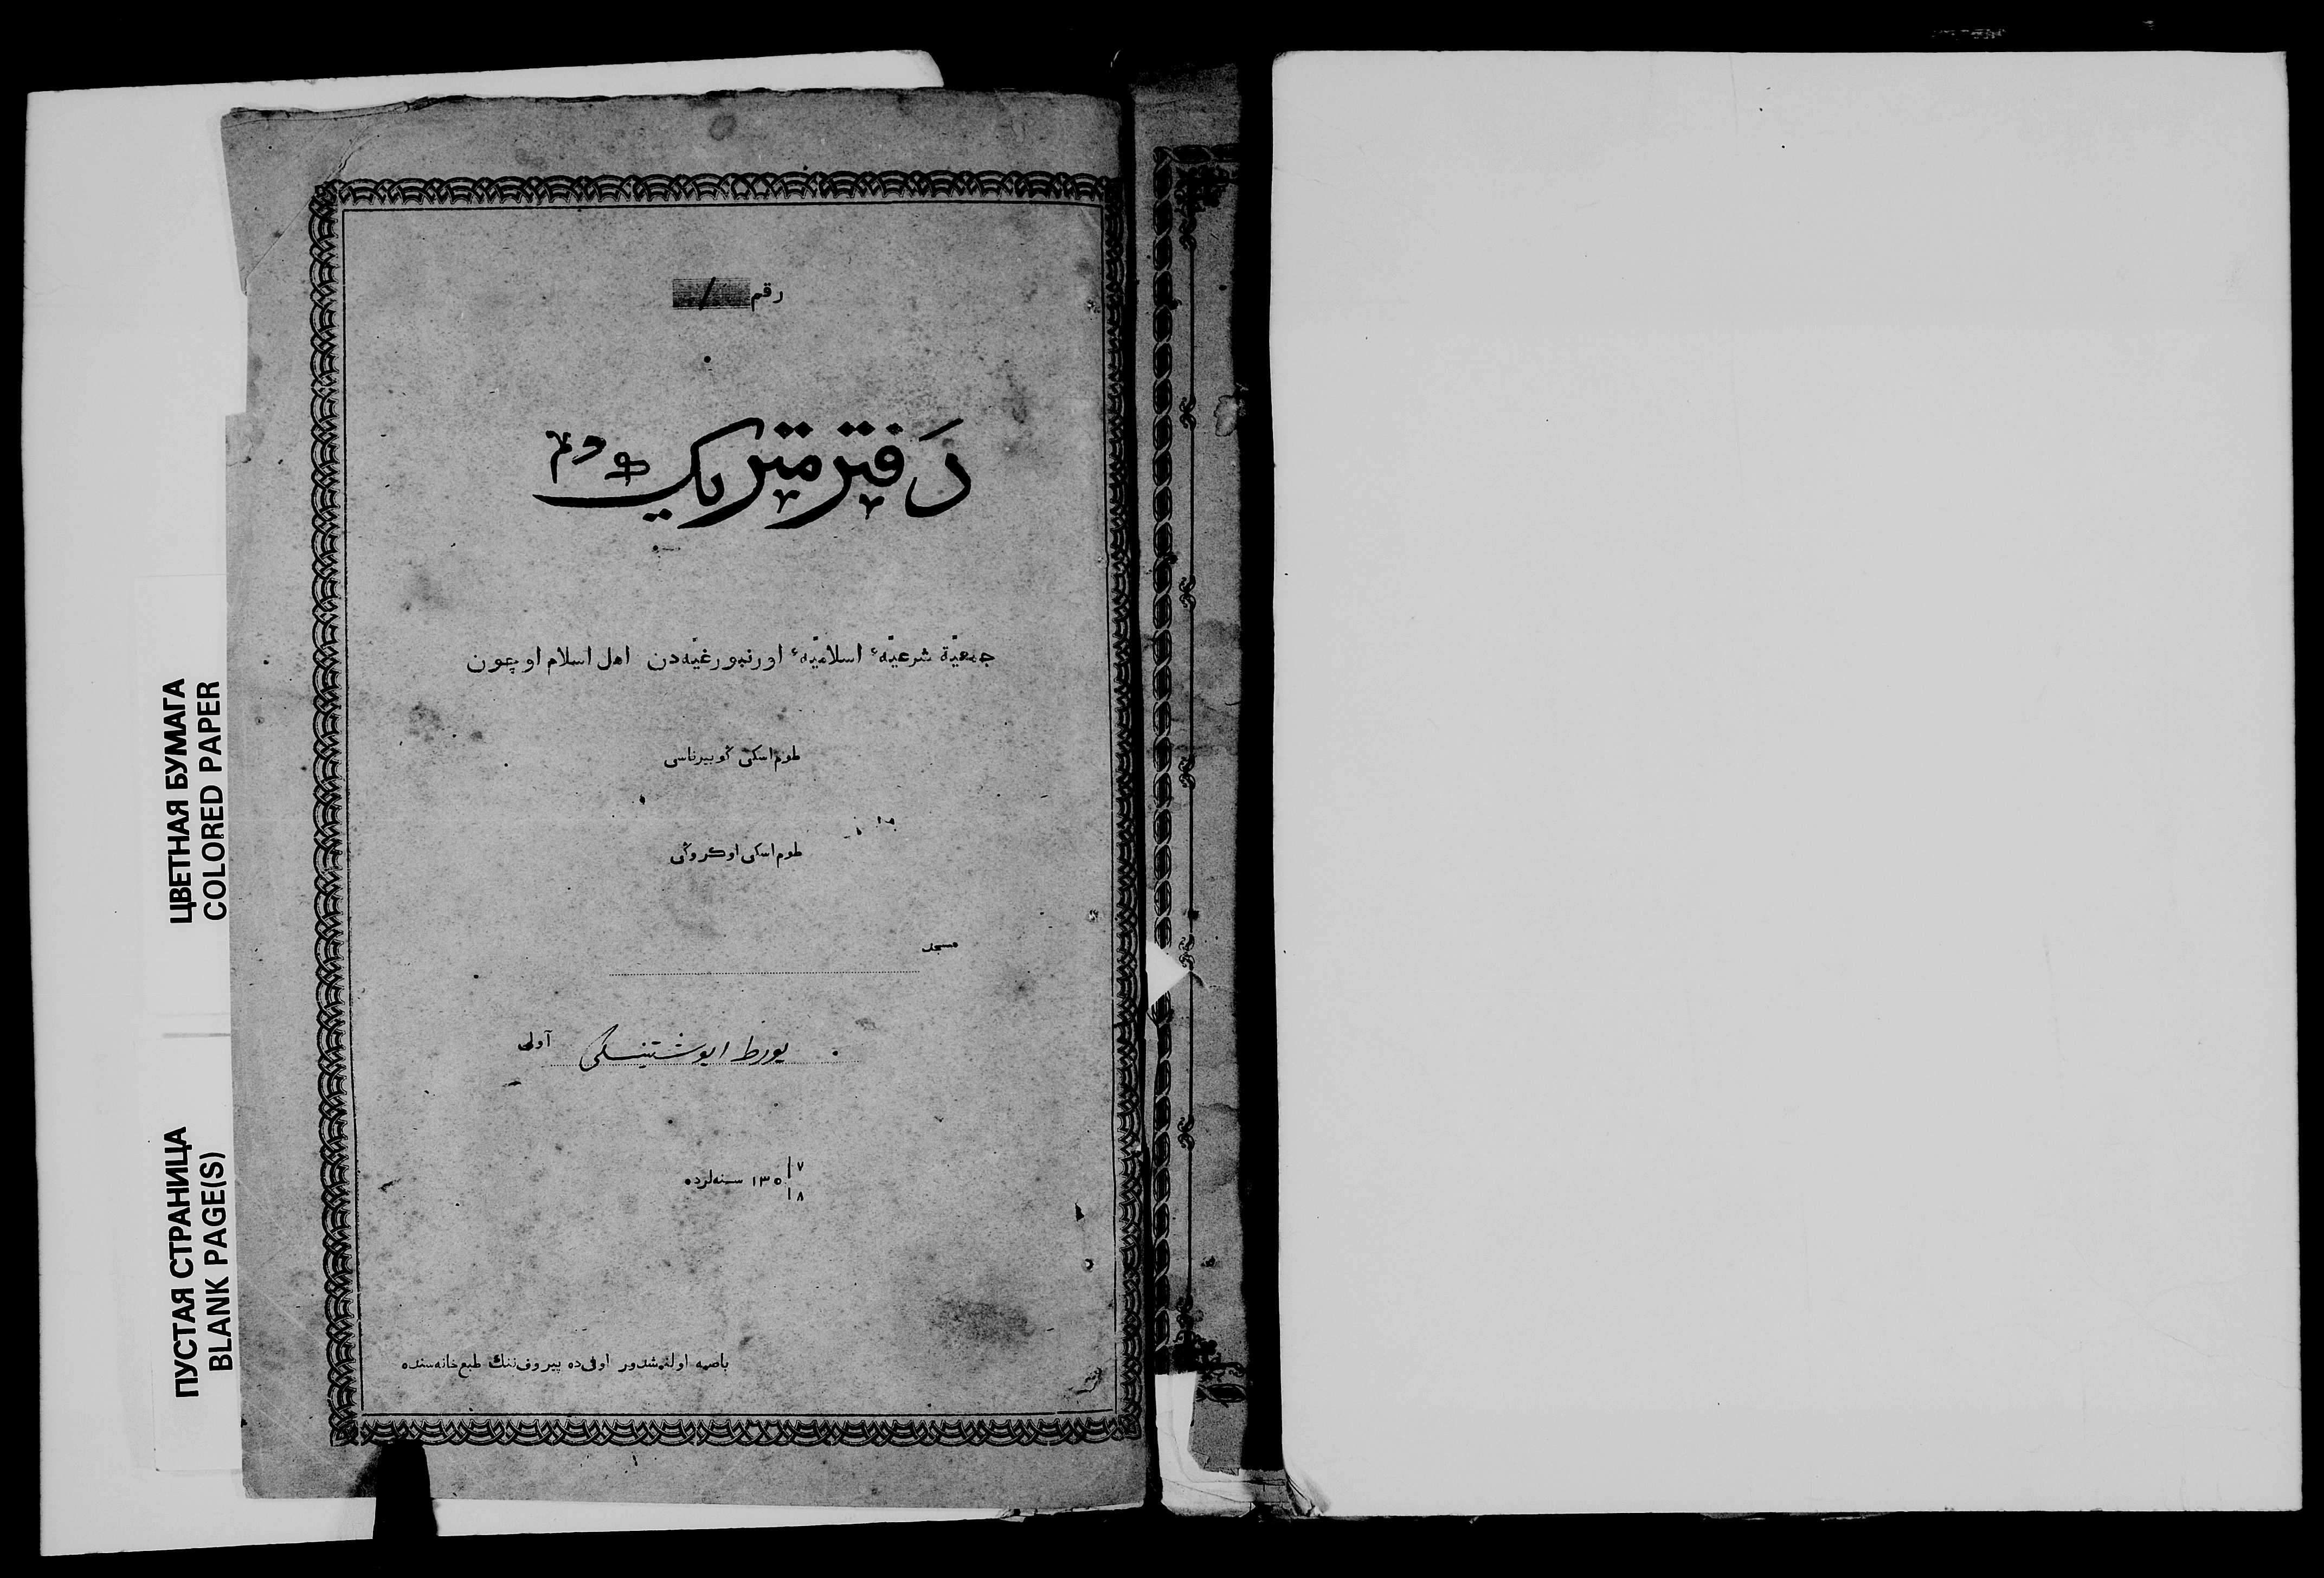 رقم /
دَفتر متریك
جمعیّة شرعیّهٔ اسلامیّهٔ اورنبورغیّه‌دن اهل اسلام اوچون
طوم اسکی گوبیرناسی
طوم اسکی اوکروگی
مسجد
یورط ایوشتینسکی آولی
۱۳۰ ۷/۸ سنه‌لرده
باصمه اولنمشدور اوفی‌ده پیروف‌ننك طبع خانه‌سنده
ЦВЕТНАЯ БУМАГА
COLORED PAPER
ПУСТАЯ СТРАНИЦА
BLANK PAGE(S)